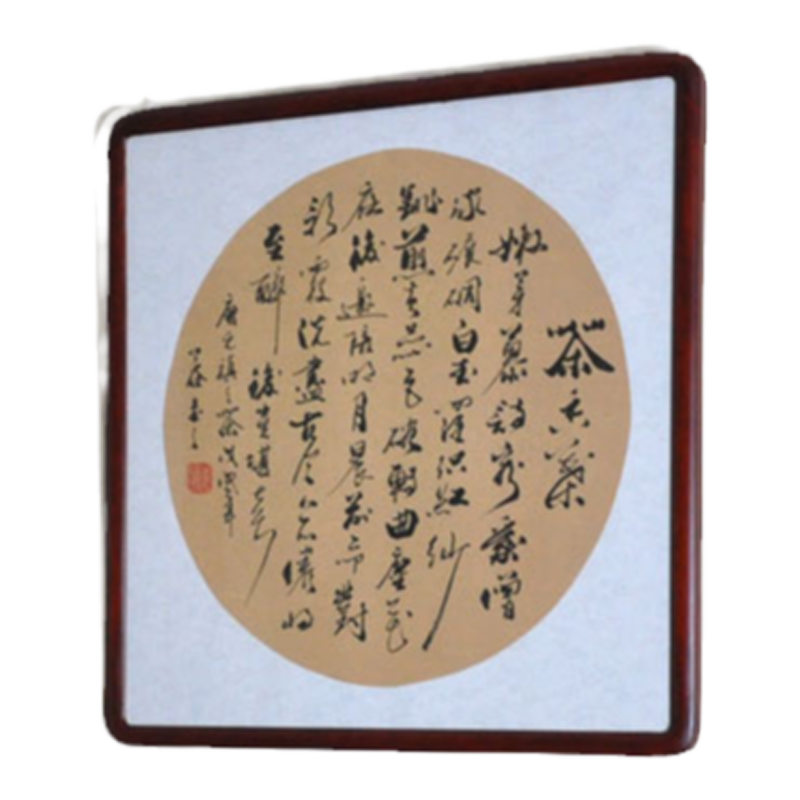 茶香葉
嫩芽慕詩客愛僧
家碾雕白玉羅織紅紗
銚煎黃蕊色碗轉曲塵花
夜後邀陪明月晨前命對
朝霞洗盡古今人不倦將
至醉後豈堪夸
唐元稹之茶戊年
書之